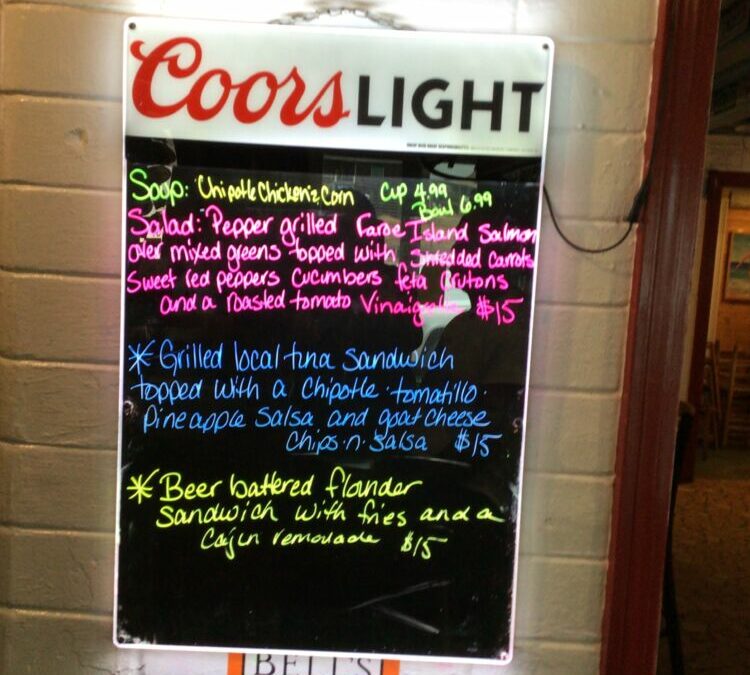 Coors LIGHT
Soup: Chipotle Chicken & Corn Cup 4.99
Bowl 6.99
Salad: Pepper grilled Faroe Island Salmon
over mixed greens topped with Shredded Carrots
Sweet red peppers Cucumbers feta Crutons
and a roasted tomato Vinaigrette $15
* Grilled local tuna Sandwich
topped with a Chipotle tomatillo
Pineapple Salsa and goat cheese
Chips n Salsa $15
* Beer battered flounder
Sandwich with fries and a
Cajun remoulade $15
BELL'S